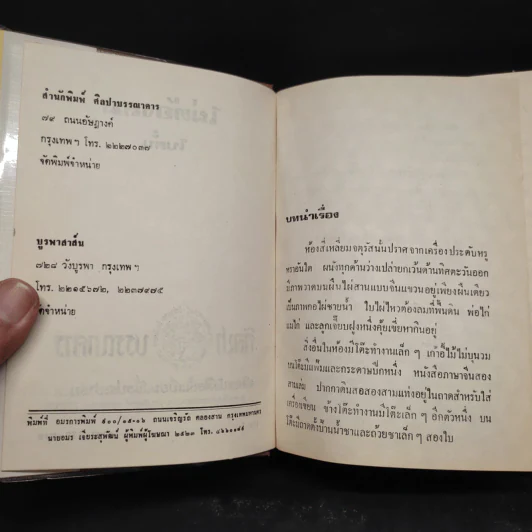 สำนักพิมพ์ ศิลปาบรรณาคาร
๗๙ ถนนอัษฎางค์
กรุงเทพฯ โทร. ๒๒๒๗๐๓๗
จัดพิมพ์จำหน่าย
บูรพาสาส์น
๗๒๘ วังบูรพา กรุงเทพฯ
โทร. ๒๒๑๕๖๗๒, ๒๒๓๙๙๗๕
จัดจำหน่าย
พิมพ์ที่ อมรการพิมพ์ ๕๐๐/๑๕-๑๖ ถนนเจริญรัถ คลองสาน กรุงเทพมหานคร
นายอมร เจียระสุพัฒน์ ผู้พิมพ์ผู้โฆษณา ๒๕๒๓ โทร.
บทนำเรื่อง
ห้องสี่เหลี่ยมจตุรัสนั้นปราศจากเครื่องประดับหรู
หราอันใด ผนังทุกด้านว่างเปล่ายกเว้นด้านทิศตะวันออก
มีภาพวาดบนผืนไผ่สานแบบจีนแขวนอยู่เพียงผืนเดียว
เป็นภาพกอไผ่ชายน้ำ ใบไผ่ไหวต้องลมที่พื้นดิน พ่อไก่
แม่ไก่ และลูกเจี๊ยบฝูงหนึ่งคุ้ยเขี่ยหากินอยู่
สิ่งอื่นในห้องมีโต๊ะทำงานเล็ก ๆ เก้าอี้ไม้ไม่บุนวม
บนโต๊ะมีแฟ้มและกระดาษปึกหนึ่ง หนังสือภาษาจีนสอง
สามเล่ม ปากกาดินสอสองสามแท่งอยู่ในถาดสำหรับใส่
เครื่องเขียน ข้างโต๊ะทำงานมีโต๊ะเล็ก ๆ อีกตัวหนึ่ง บน
โต๊ะมีถาดตั้งป้านน้ำชาและถ้วยชาเล็ก ๆ สองใบ